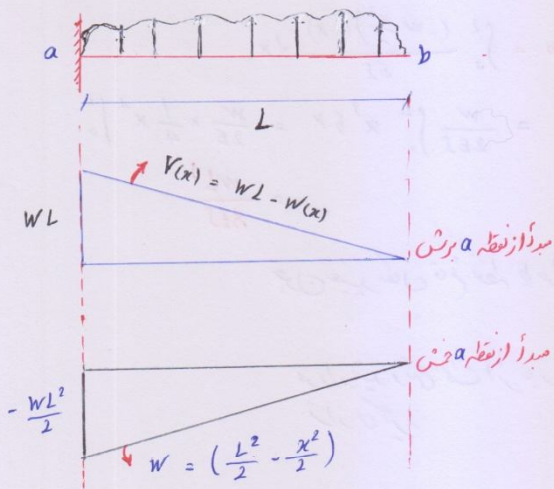 a
b
L
V(x) = WL - W(x)
WL
مبدأ از نقطه a برش
مبدأ از نقطه a خمش
- WL²/2
W = (L²/2 - x²/2)